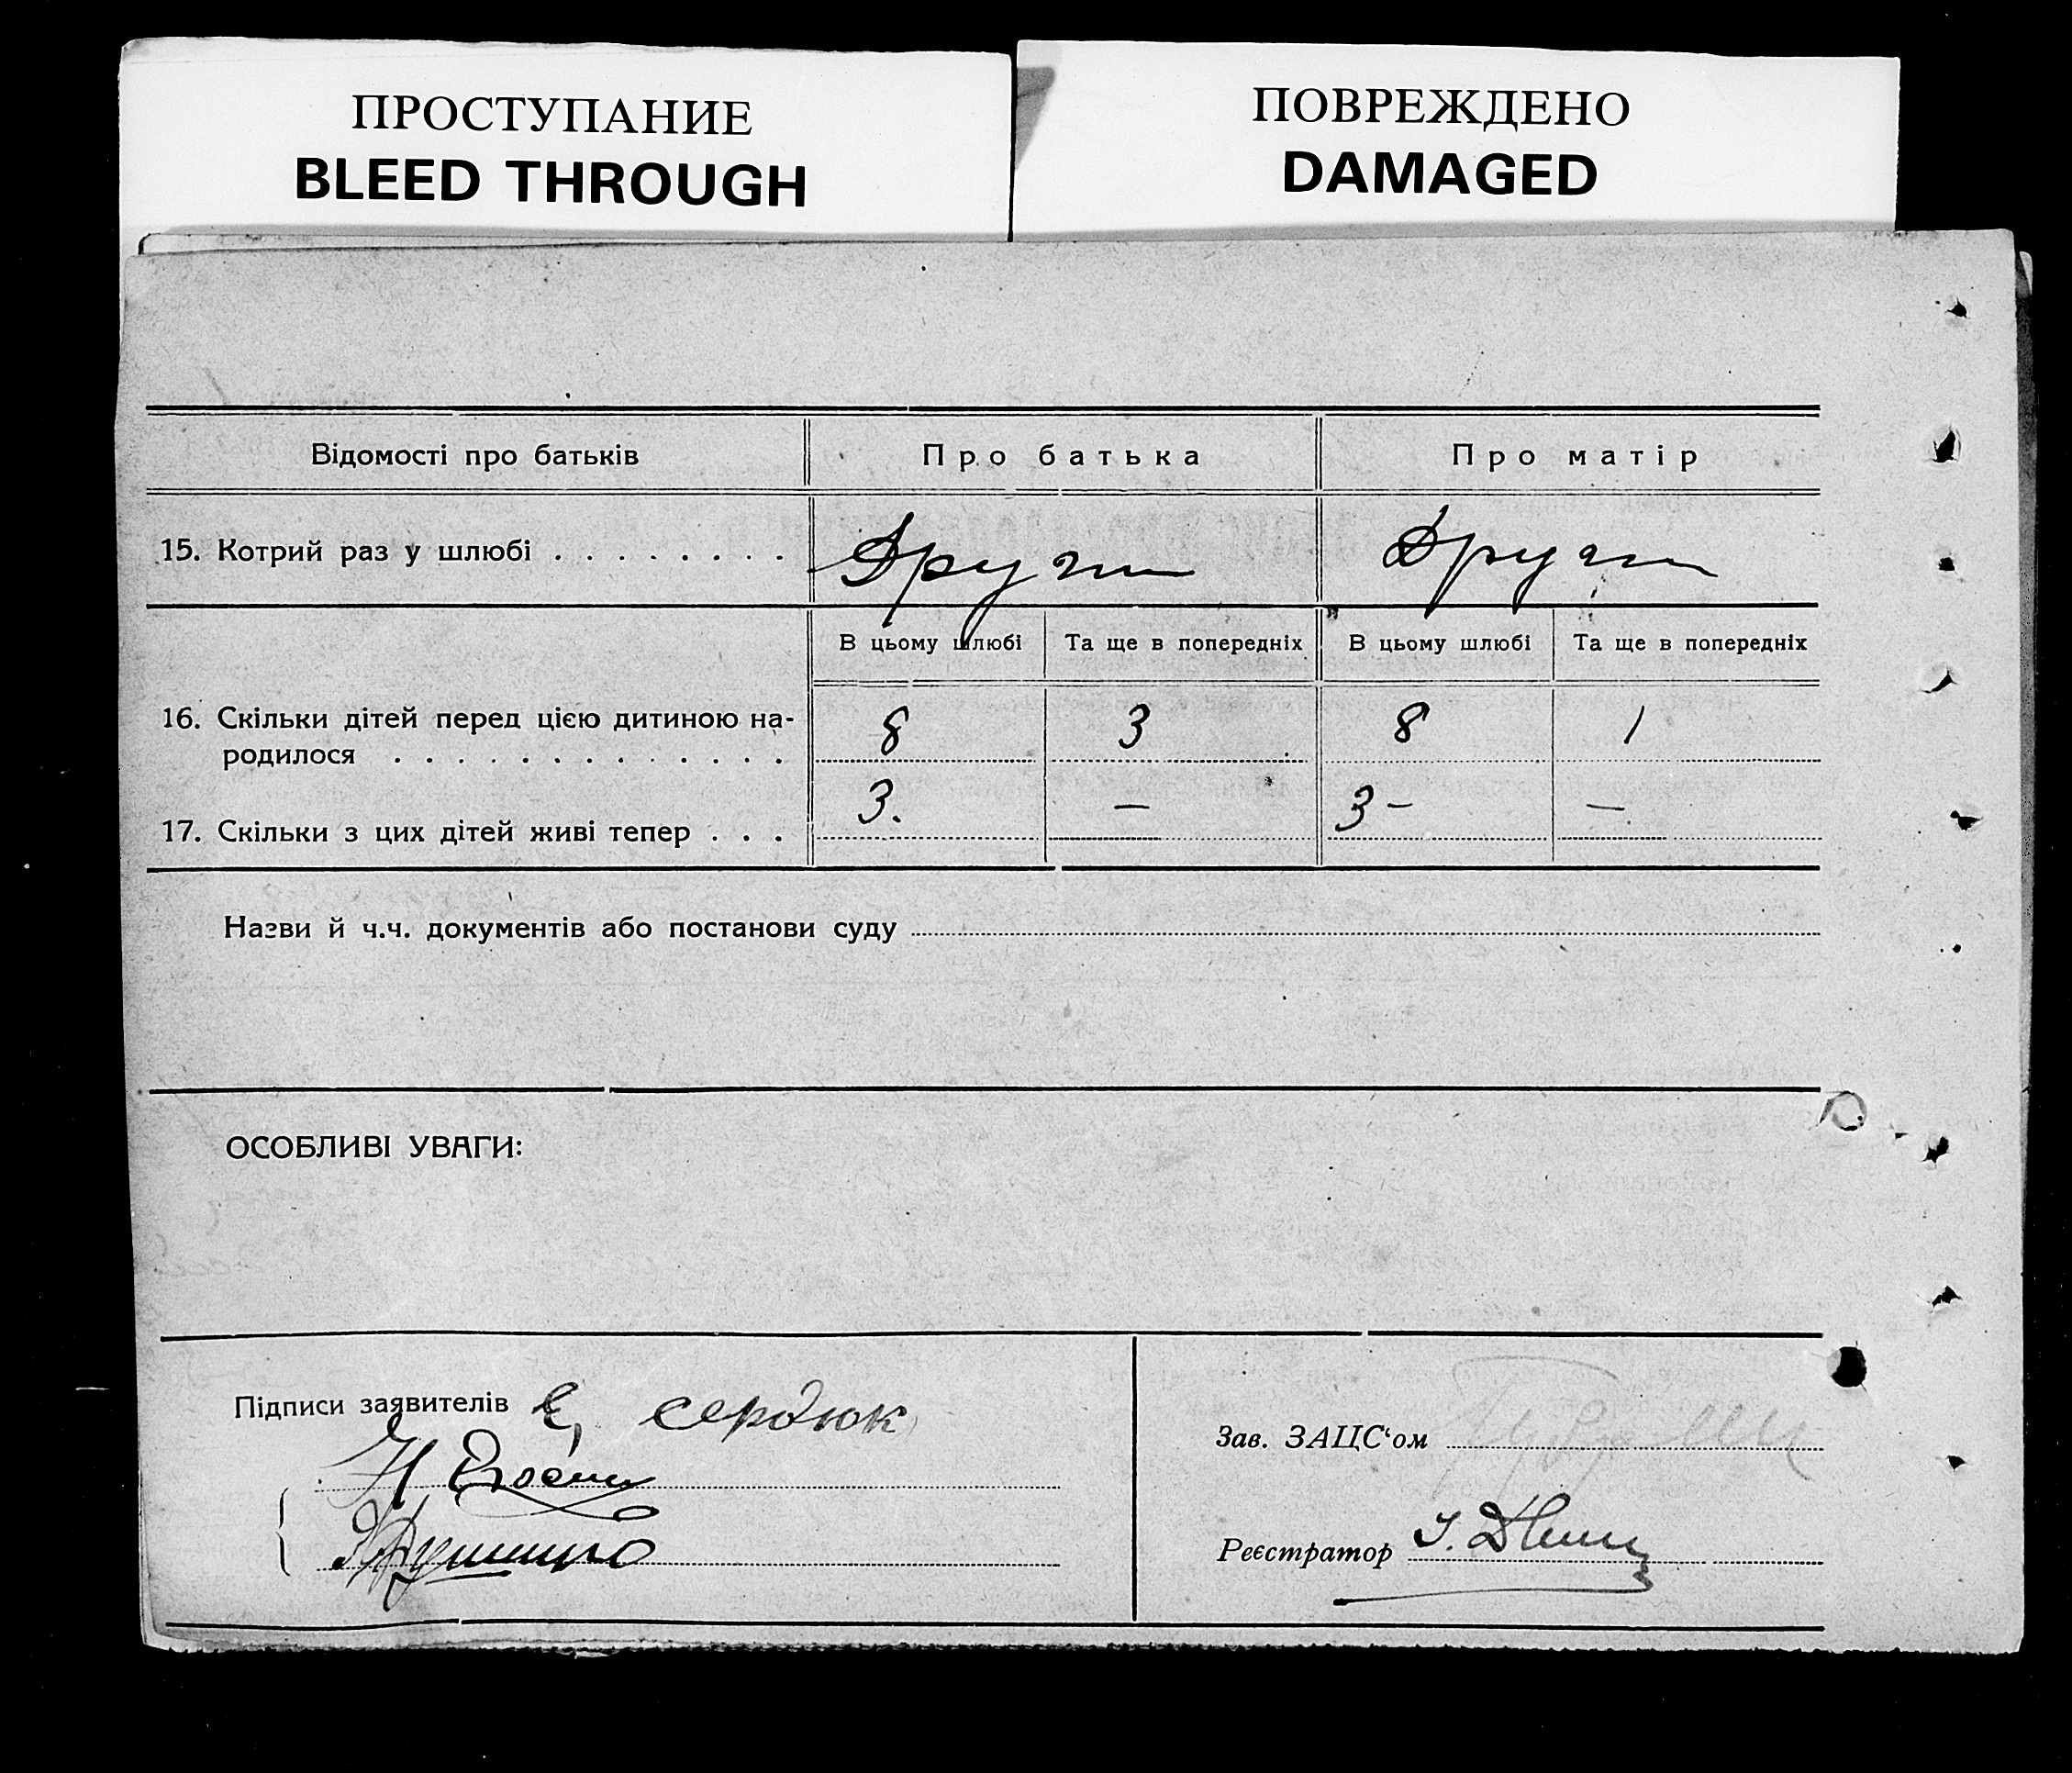 ПРОСТУПАНИЕ
BLEED THROUGH
ПОВРЕЖДЕНО
DAMAGED
Відомості про батьків Про батька Про матір
15. Котрий раз у шлюбі . . . . . . . . Други Други
В цьому шлюбі Та ще в попередніх В цьому шлюбі Та ще в попередніх
16. Скільки дітей перед цією дитиною на-
родилося . . . . . . . . . . . . . 8 3 8 1
17. Скільки з цих дітей живі тепер . . . 3. — 3 — —
Назви й ч.ч. документів або постанови суду
ОСОБЛИВІ УВАГИ:
Підписи заявителів Є, сердюк
Зав. ЗАЦС‘ом
Реєстратор